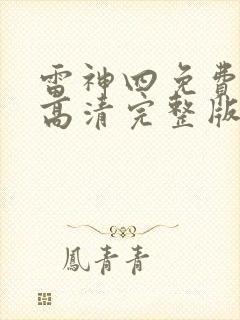 雷神四免費
高清完整版
鳳青青